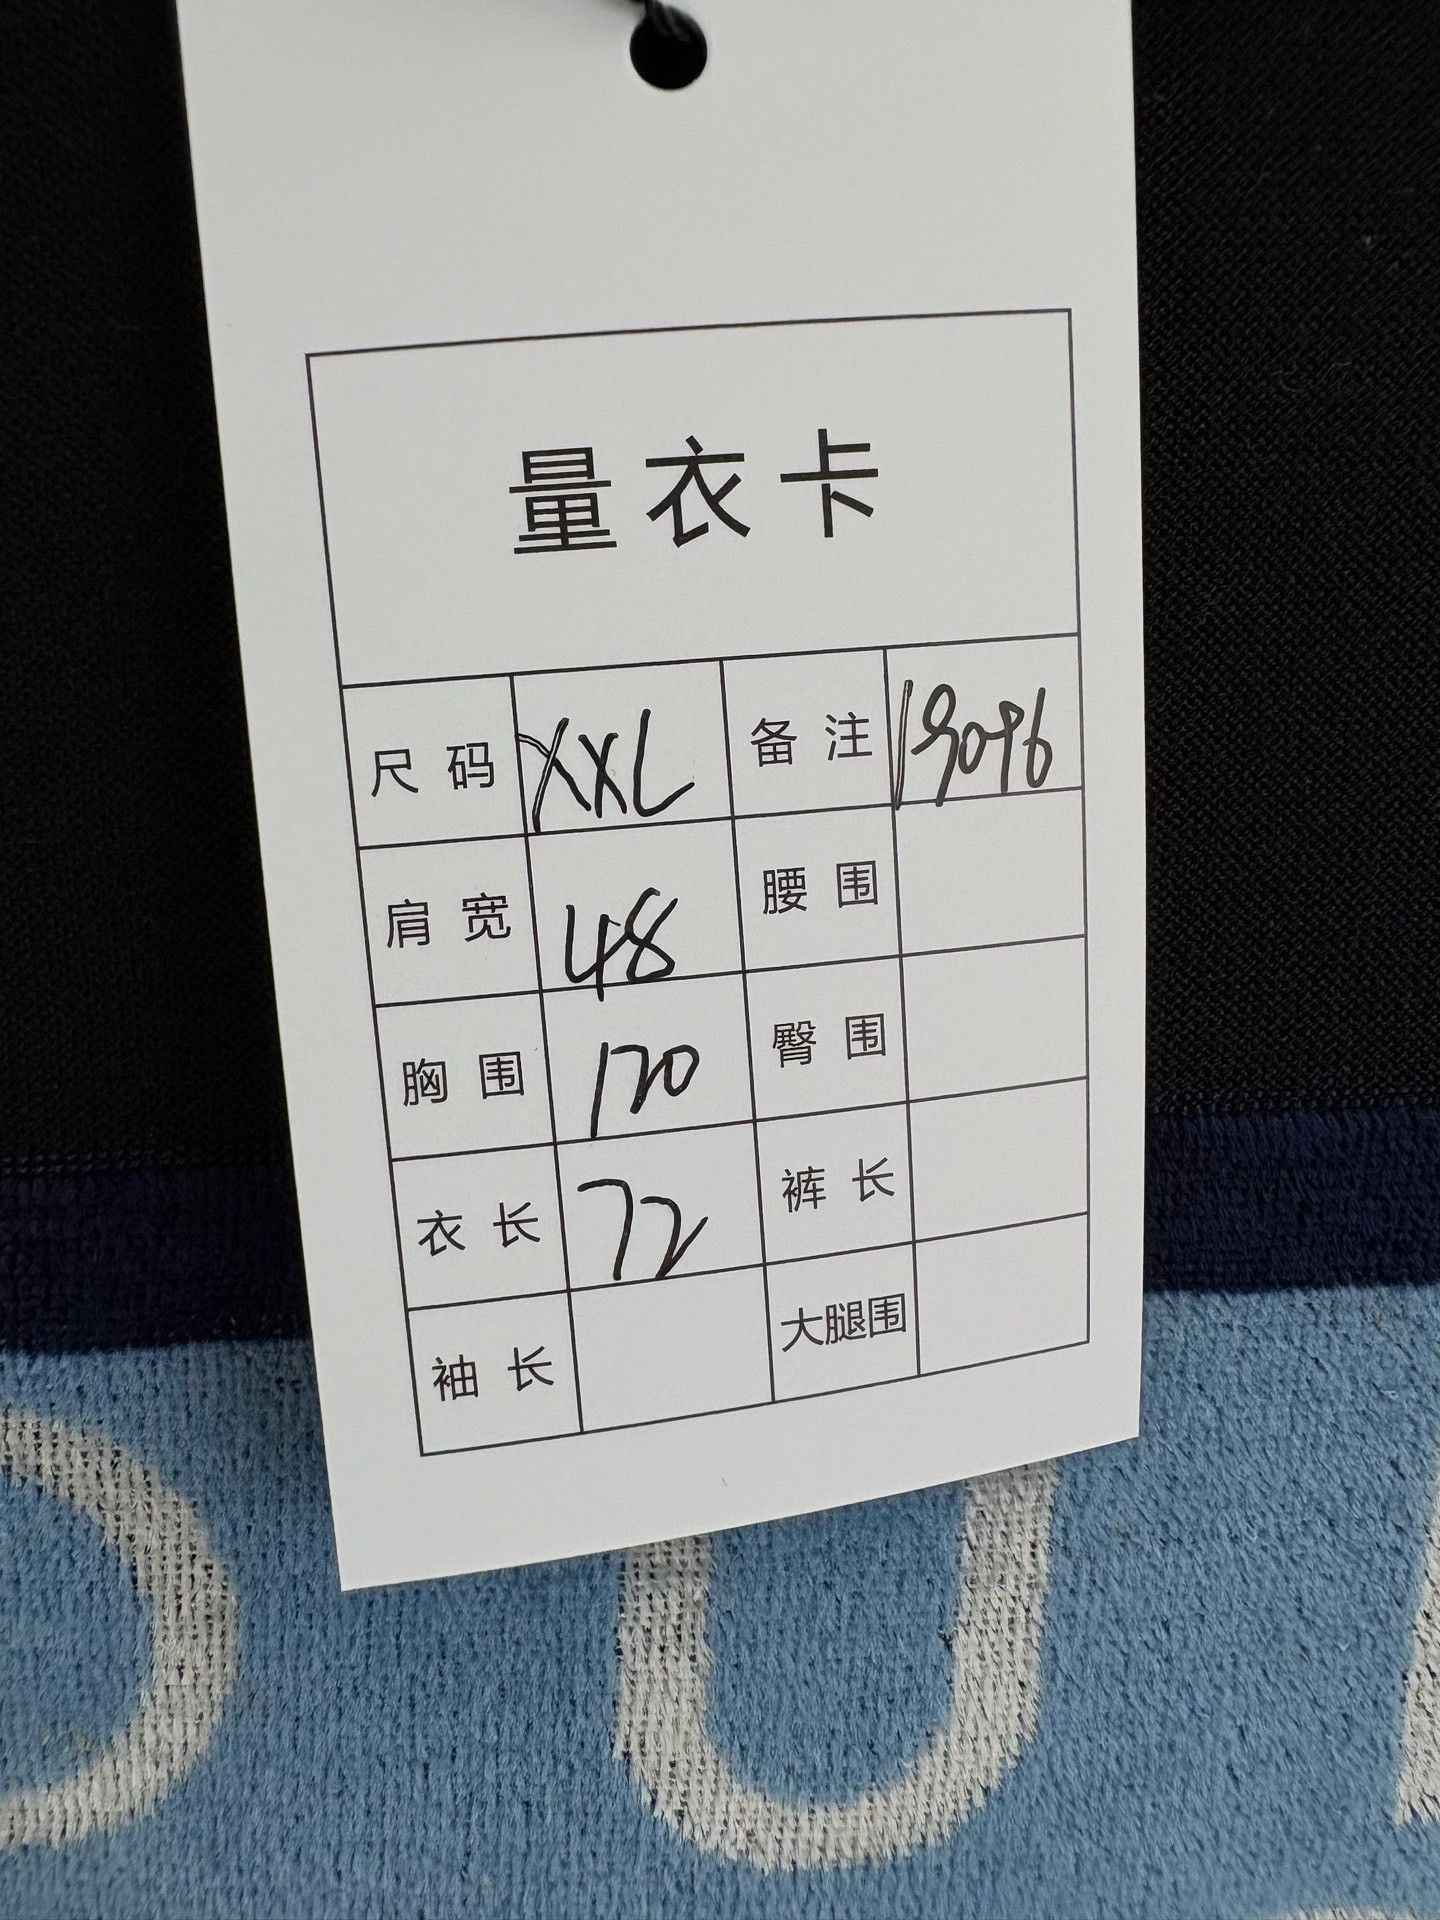 量衣卡
尺码 XXL 备注 19096
肩宽 48 腰围
胸围 120 臀围
衣长 72 裤长
袖长 大腿围